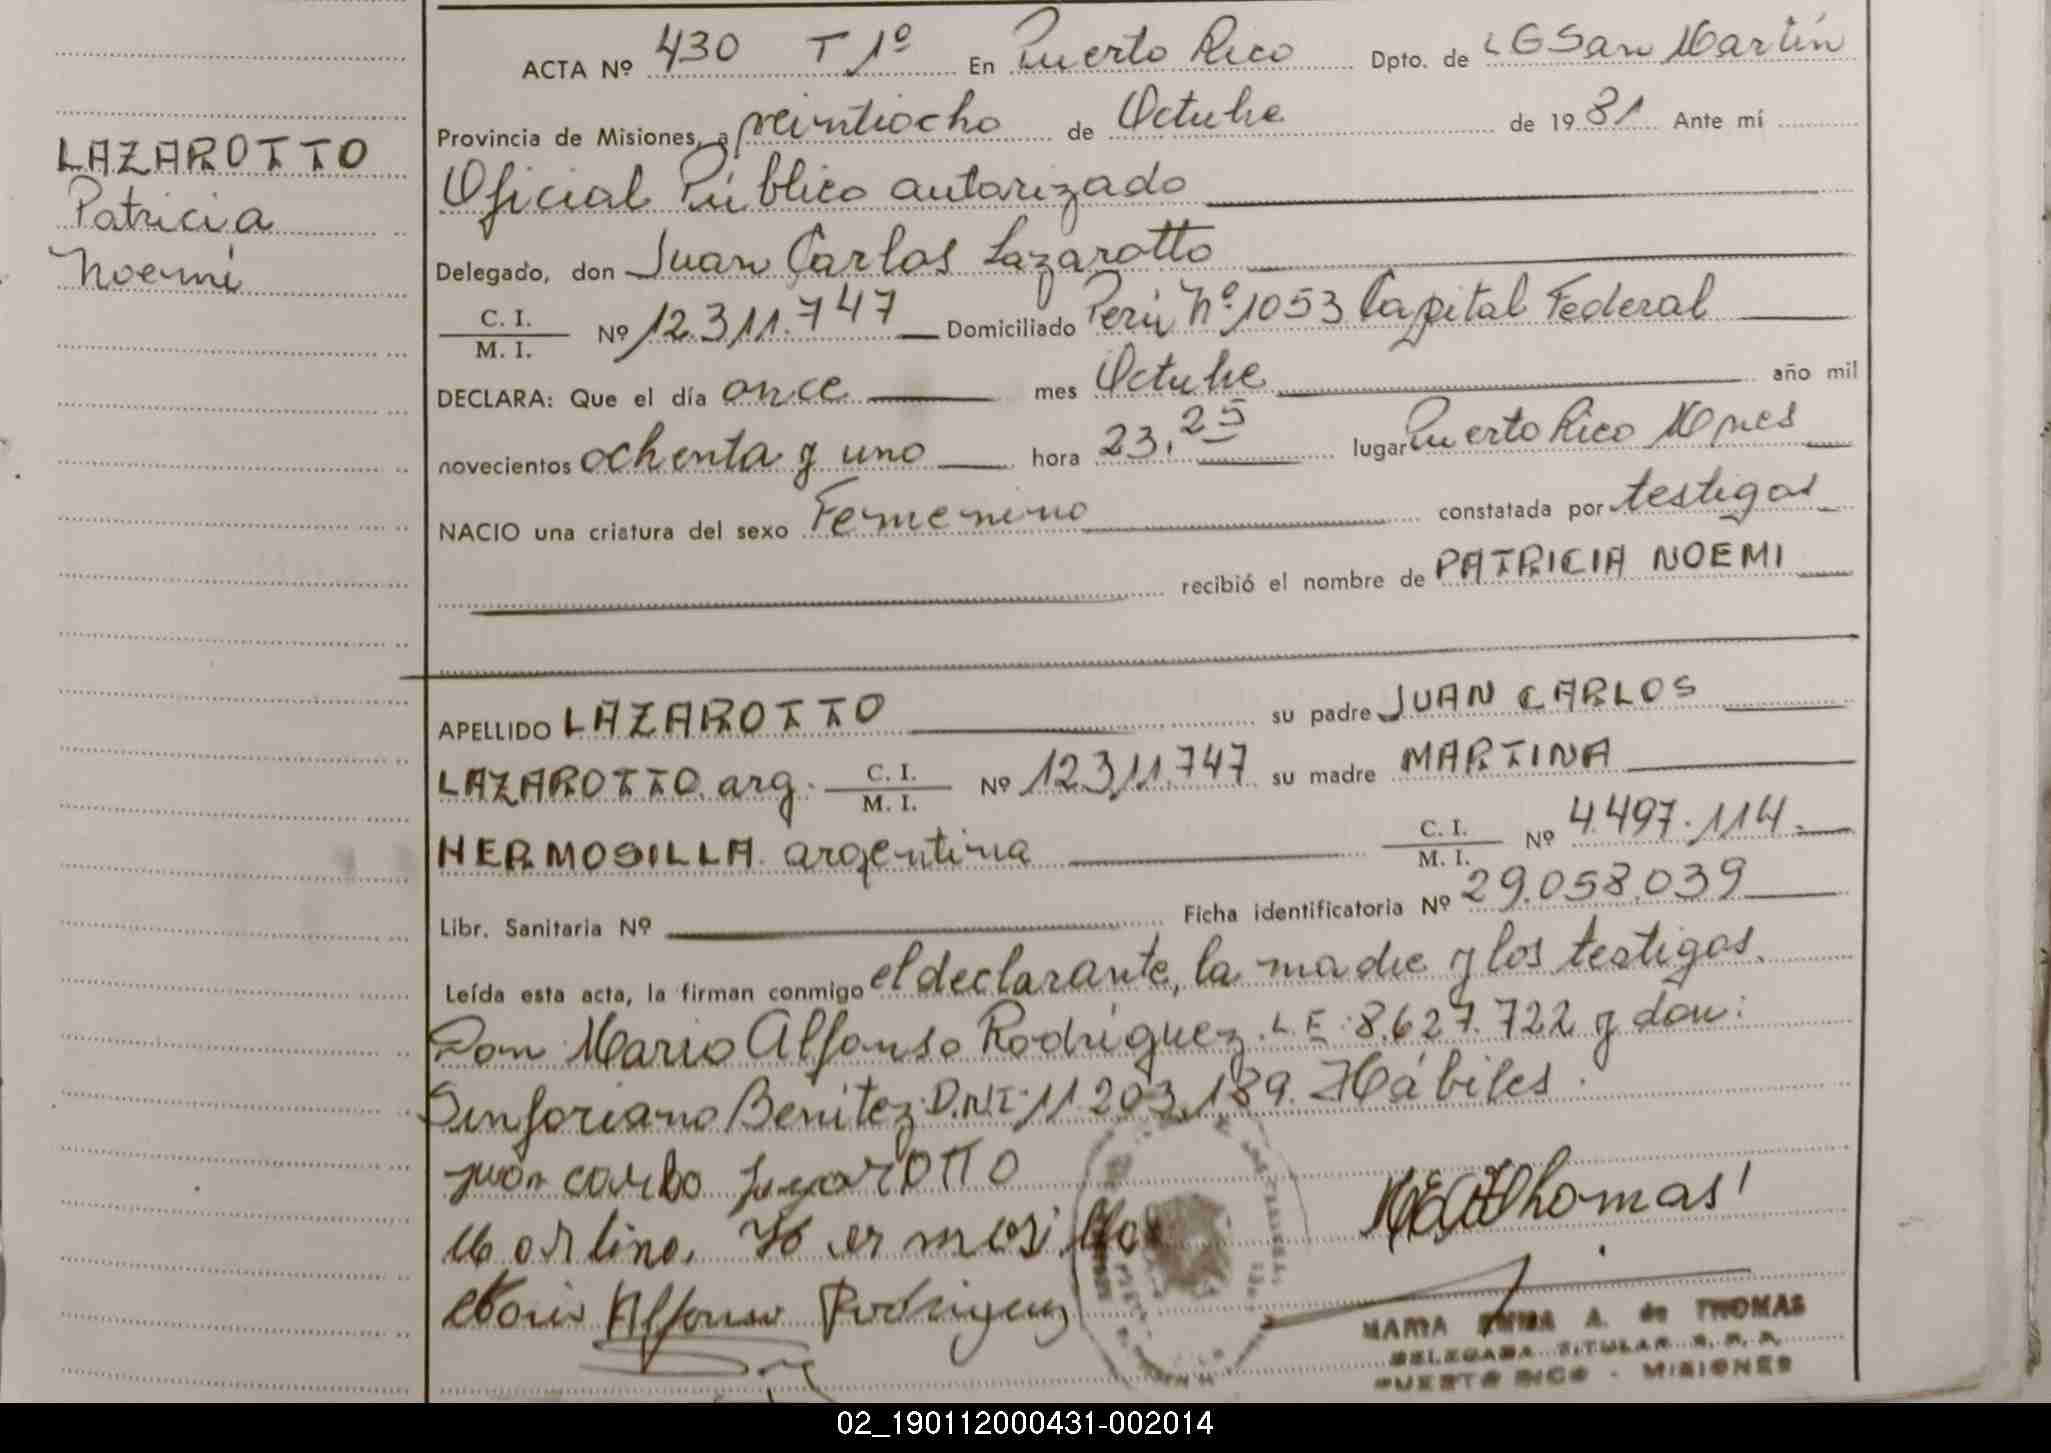 ACTA Nº 430 T 1º En Puerto Rico Dpto. de LG San Martín
Provincia de Misiones, a veintiocho de Octubre de 19 81 Ante mí
LAZAROTTO
Patricia
Noemi
Oficial Público autorizado
Delegado, don Juan Carlos Lazarotto
C. I.
M. I. Nº 12.311.747 Domiciliado Perú Nº 1053 Capital Federal
DECLARA: Que el día once mes Octubre año mil
novecientos ochenta y uno hora 23,25 lugar Puerto Rico Mnes
NACIO una criatura del sexo Femenino constatada por testigos
recibió el nombre de PATRICIA NOEMI
APELLIDO LAZAROTTO su padre JUAN CARLOS
LAZAROTTO. arg. C. I. M. I. Nº 12.311.747 su madre MARTINA
HERMOSILLA. argentina C. I. M. I. Nº 4.497.114.
Libr. Sanitaria Nº Ficha identificatoria Nº 29.058.039
Leída esta acta, la firman conmigo el declarante, la madre y los testigos.
Don Mario Alfonso Rodríguez. L.E: 8.627.722 y don:
Sinforiano Benitez D.N.I: 11 203.189. Hábiles.
juan carlo lazarotto
Martina Hermosilla
Mario Alfonso Rodriguez
Thomas
MARIA EMMA A. de THOMAS
DELEGADA TITULAR R. P.
PUERTO RICO - MISIONES
02_190112000431-002014